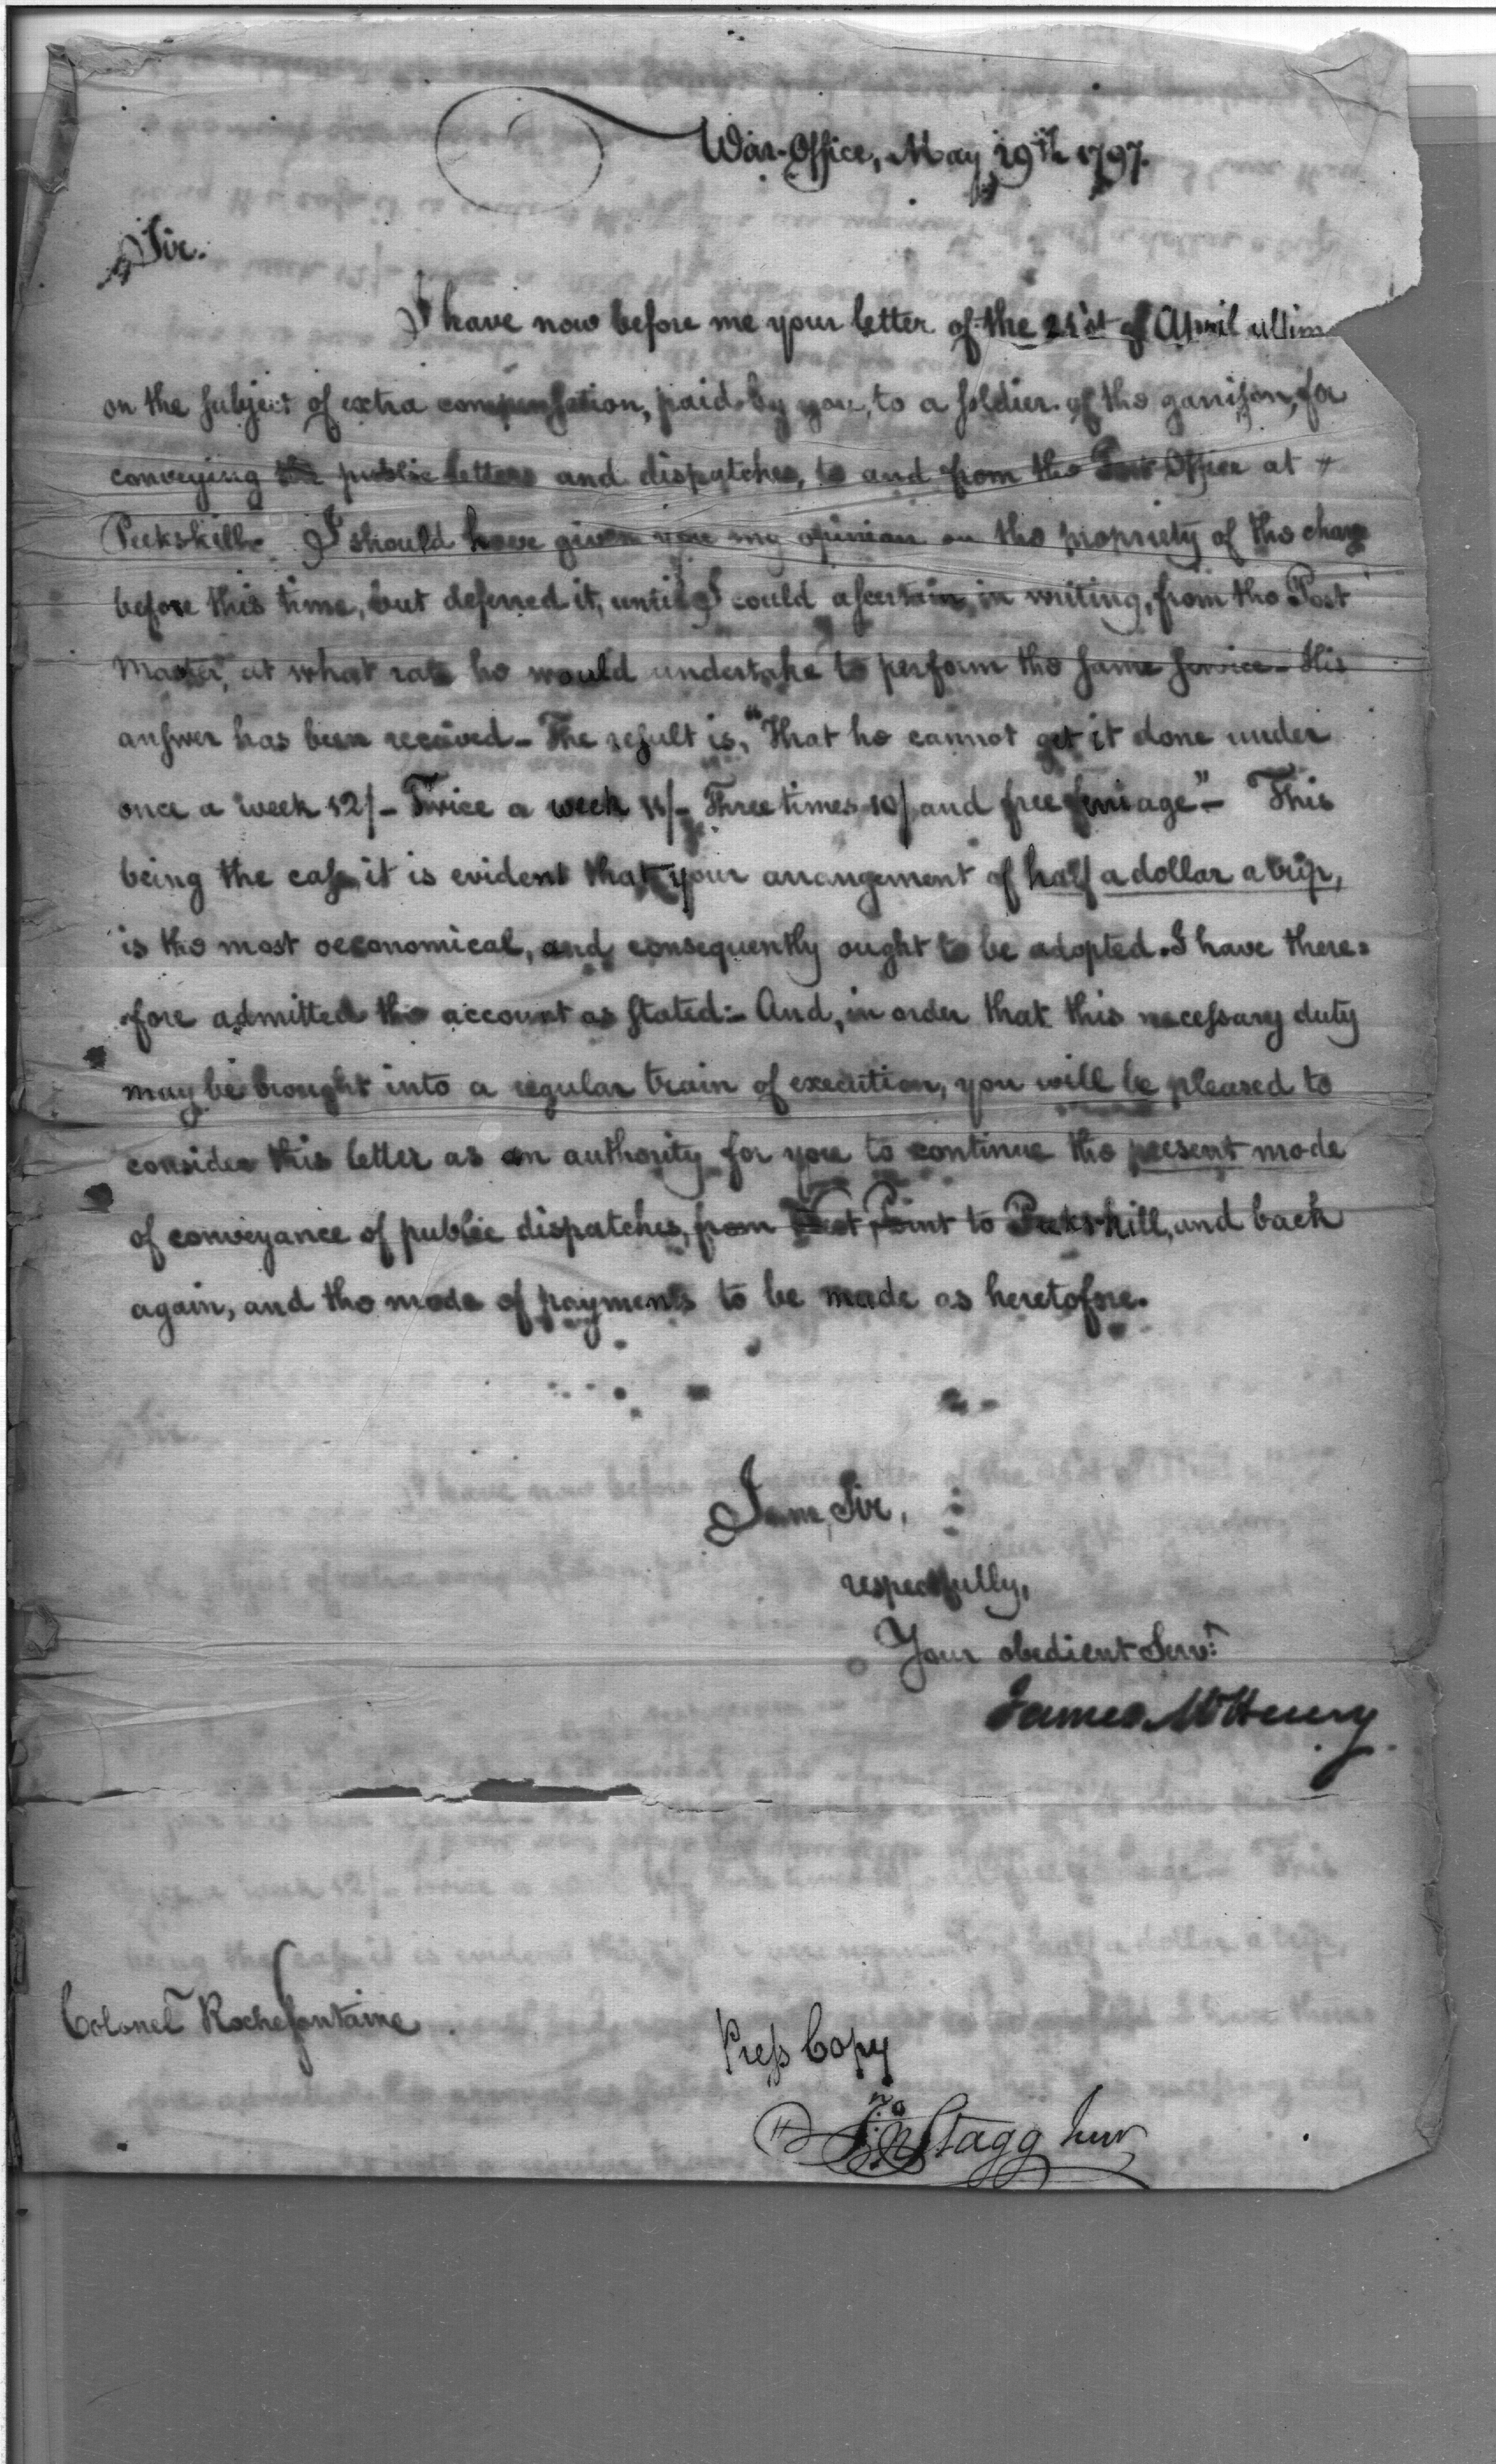 War-Office, May 19th 1797.
Sir.
I have now before me your letter of the 21st of April ultim
on the subject of extra compensation, paid by you, to a soldier of the garrison, for
conveying the public letters and dispatches, to and from the Post Office at
Peekskill. I should have given you my opinion on the propriety of the charge
before this time, but deferred it, until I could ascertain, in writing, from the Post
Master, at what rate he would undertake to perform the same service - His
answer has been received - The result is, "That he cannot get it done under
once a week 12/- Twice a week 11/- Three times 10/ and free ferriage" - This
being the case, it is evident that your arrangement of half a dollar a trip,
is the most oeconomical, and consequently ought to be adopted. I have there=
fore admitted the account as stated:- And, in order that this necessary duty
may be brought into a regular train of execution, you will be pleased to
consider this letter as an authority for you to continue the present mode
of conveyance of public dispatches, from West Point to Peekskill, and back
again, and the mode of payments to be made as heretofore.
I am, Sir,
respectfully,
Your obedient Servt
James McHenry
Colonel Rochefontaine
Press Copy
Jno Stagg Junr